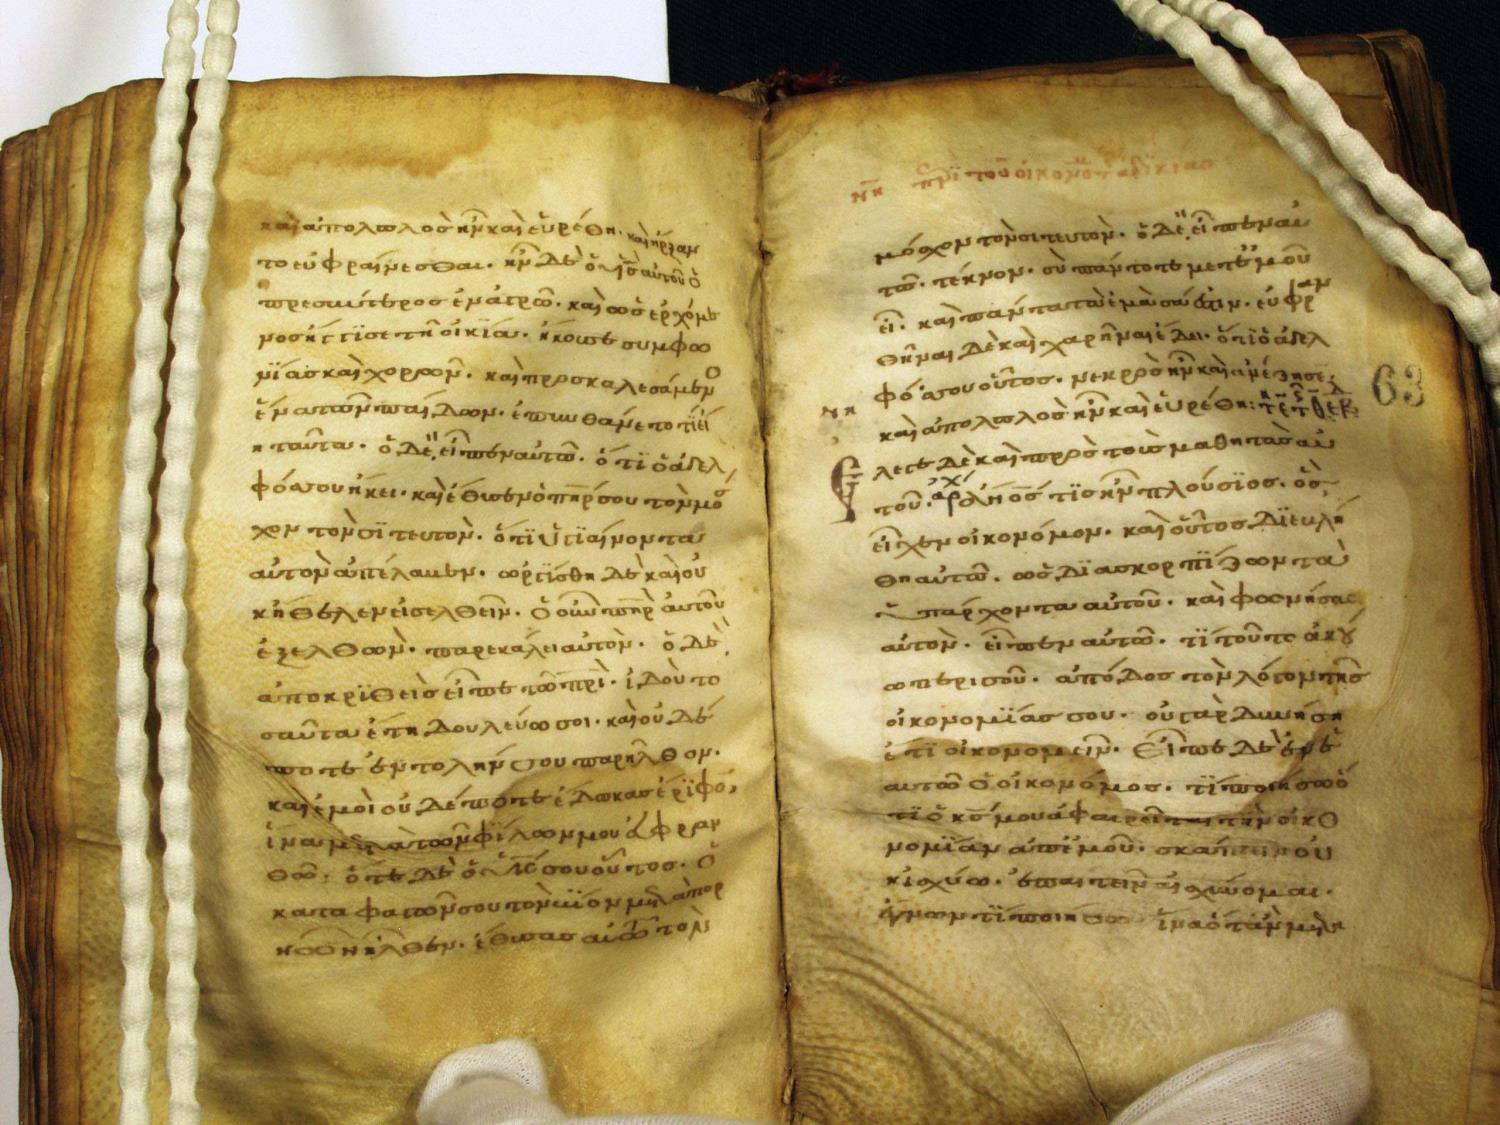 καὶ ἀπολωλὸσ ἦν καὶ εὑρέθη· καὶ ἤρξαν
το εὐφραίνεσθαι· ἦν δὲ ὁ υἱὸσ αὐτοῦ ὁ
πρεσβύτεροσ ἐν ἀγρῶ· καὶ ὡσ ἐρχόμε
νοσ ἤγγϊσε τῆ οἰκία· ἤκουσε συμφω
νϊασ καὶ χορῶν· καὶ προσκαλεσάμεν
ἕνα τῶν παίδων· ἐπυνθάνετο τί εἴ
η ταῦτα· ὁ δὲ εἶπεν αὐτῶ· ὅτϊ ὁ ἀδελ
φόσ σου ἥκει· καὶ ἔθυσεν ὁ πηρ σου τὸν μό
σχον τὸν σϊτευτὸν· ὅτϊ ὑγϊαίνοντα
αὐτὸν ἀπέλαβεν· ὠργΐσθη δὲ καὶ οὐ
κ ἤθελεν εἰσελθεῖν· ὁ οὖν πηρ αὐτοῦ
ἐξελθὼν· παρεκάλει αὐτὸν· ὁ δὲ
ἀποκρϊθεὶσ εἶπε τῶ πρὶ· ἰδοὺ το
σαῦτα ἔτη δουλεύω σοι· καὶ οὐδέ
ποτε ἐντολήν σου παρῆλθον·
καὶ ἐμοὶ οὐδέποτε ἔδωκασ ἔρϊφον,
ἵνα μετὰ τῶν φίλων μου εὐφραν
θῶ· ὅτε δὲ ὁ υἱόσ σου οὗτοσ· ὁ
καταφαγών σου τὸν βίον μετὰ πορ
νῶν ἦλθεν· ἔθυσασ αὐτῶ τὸν
νη περὶ τοῦ οἰκονόμου τῆσ ἀδικίασ
μόσχον τὸν σιτευτὸν· ὁ δὲ εἶπεν αὐ
τῶ· τέκνον· σὺ πάντοτε μετ ἐμοῦ
εἶ· καὶ πάντα τὰ ἐμὰ σά ἐστιν· εὐφραν
θῆναι δὲ καὶ χαρῆναι ἔδει· ὅτϊ ὁ ἀδελ
φόσ σου οὗτοσ· νεκρὸσ ἦν καὶ ἀνέζησε·
καὶ ἀπολωλὸσ ἦν καὶ εὑρέθη:
νη
Ἔλεγε δὲ καὶ πρὸσ τοὺσ μαθητὰσ αὐ
τοῦ· ἀρχ ἄνοσ τϊσ ἦν πλούσϊοσ· ὃσ
εἶχεν οἰκονόμον· καὶ οὗτοσ δϊεβλή
θη αὐτῶ· ὡσ δϊασκορπϊζων τὰ
ὑπάρχοντα αὐτοῦ· καὶ φωνήσασ
αὐτὸν· εἶπεν αὐτῶ· τϊ τοῦτο ἀκού
ω περι σοῦ· ἀπόδοσ τὸν λόγον τῆσ
οἰκονομϊάσ σου· οὐ γὰρ δυνήση
ἔτϊ οἰκονομεῖν· Εἶπε δὲ ἐν ἑ
αυτῶ ὁ οἰκονόμοσ· τϊ ποιήσω ὅ
τϊ ὁ κσ μου ἀφαιρεῖται τὴν οἰκο
νομϊαν ἀπ ἐμοῦ· σκάπτειν οὐ
κ ἰσχύω· ἐπαιτεῖν αἰσχύνομαι·
ἔγνων τϊ ποιήσω ἵνα ὅταν μετα
63